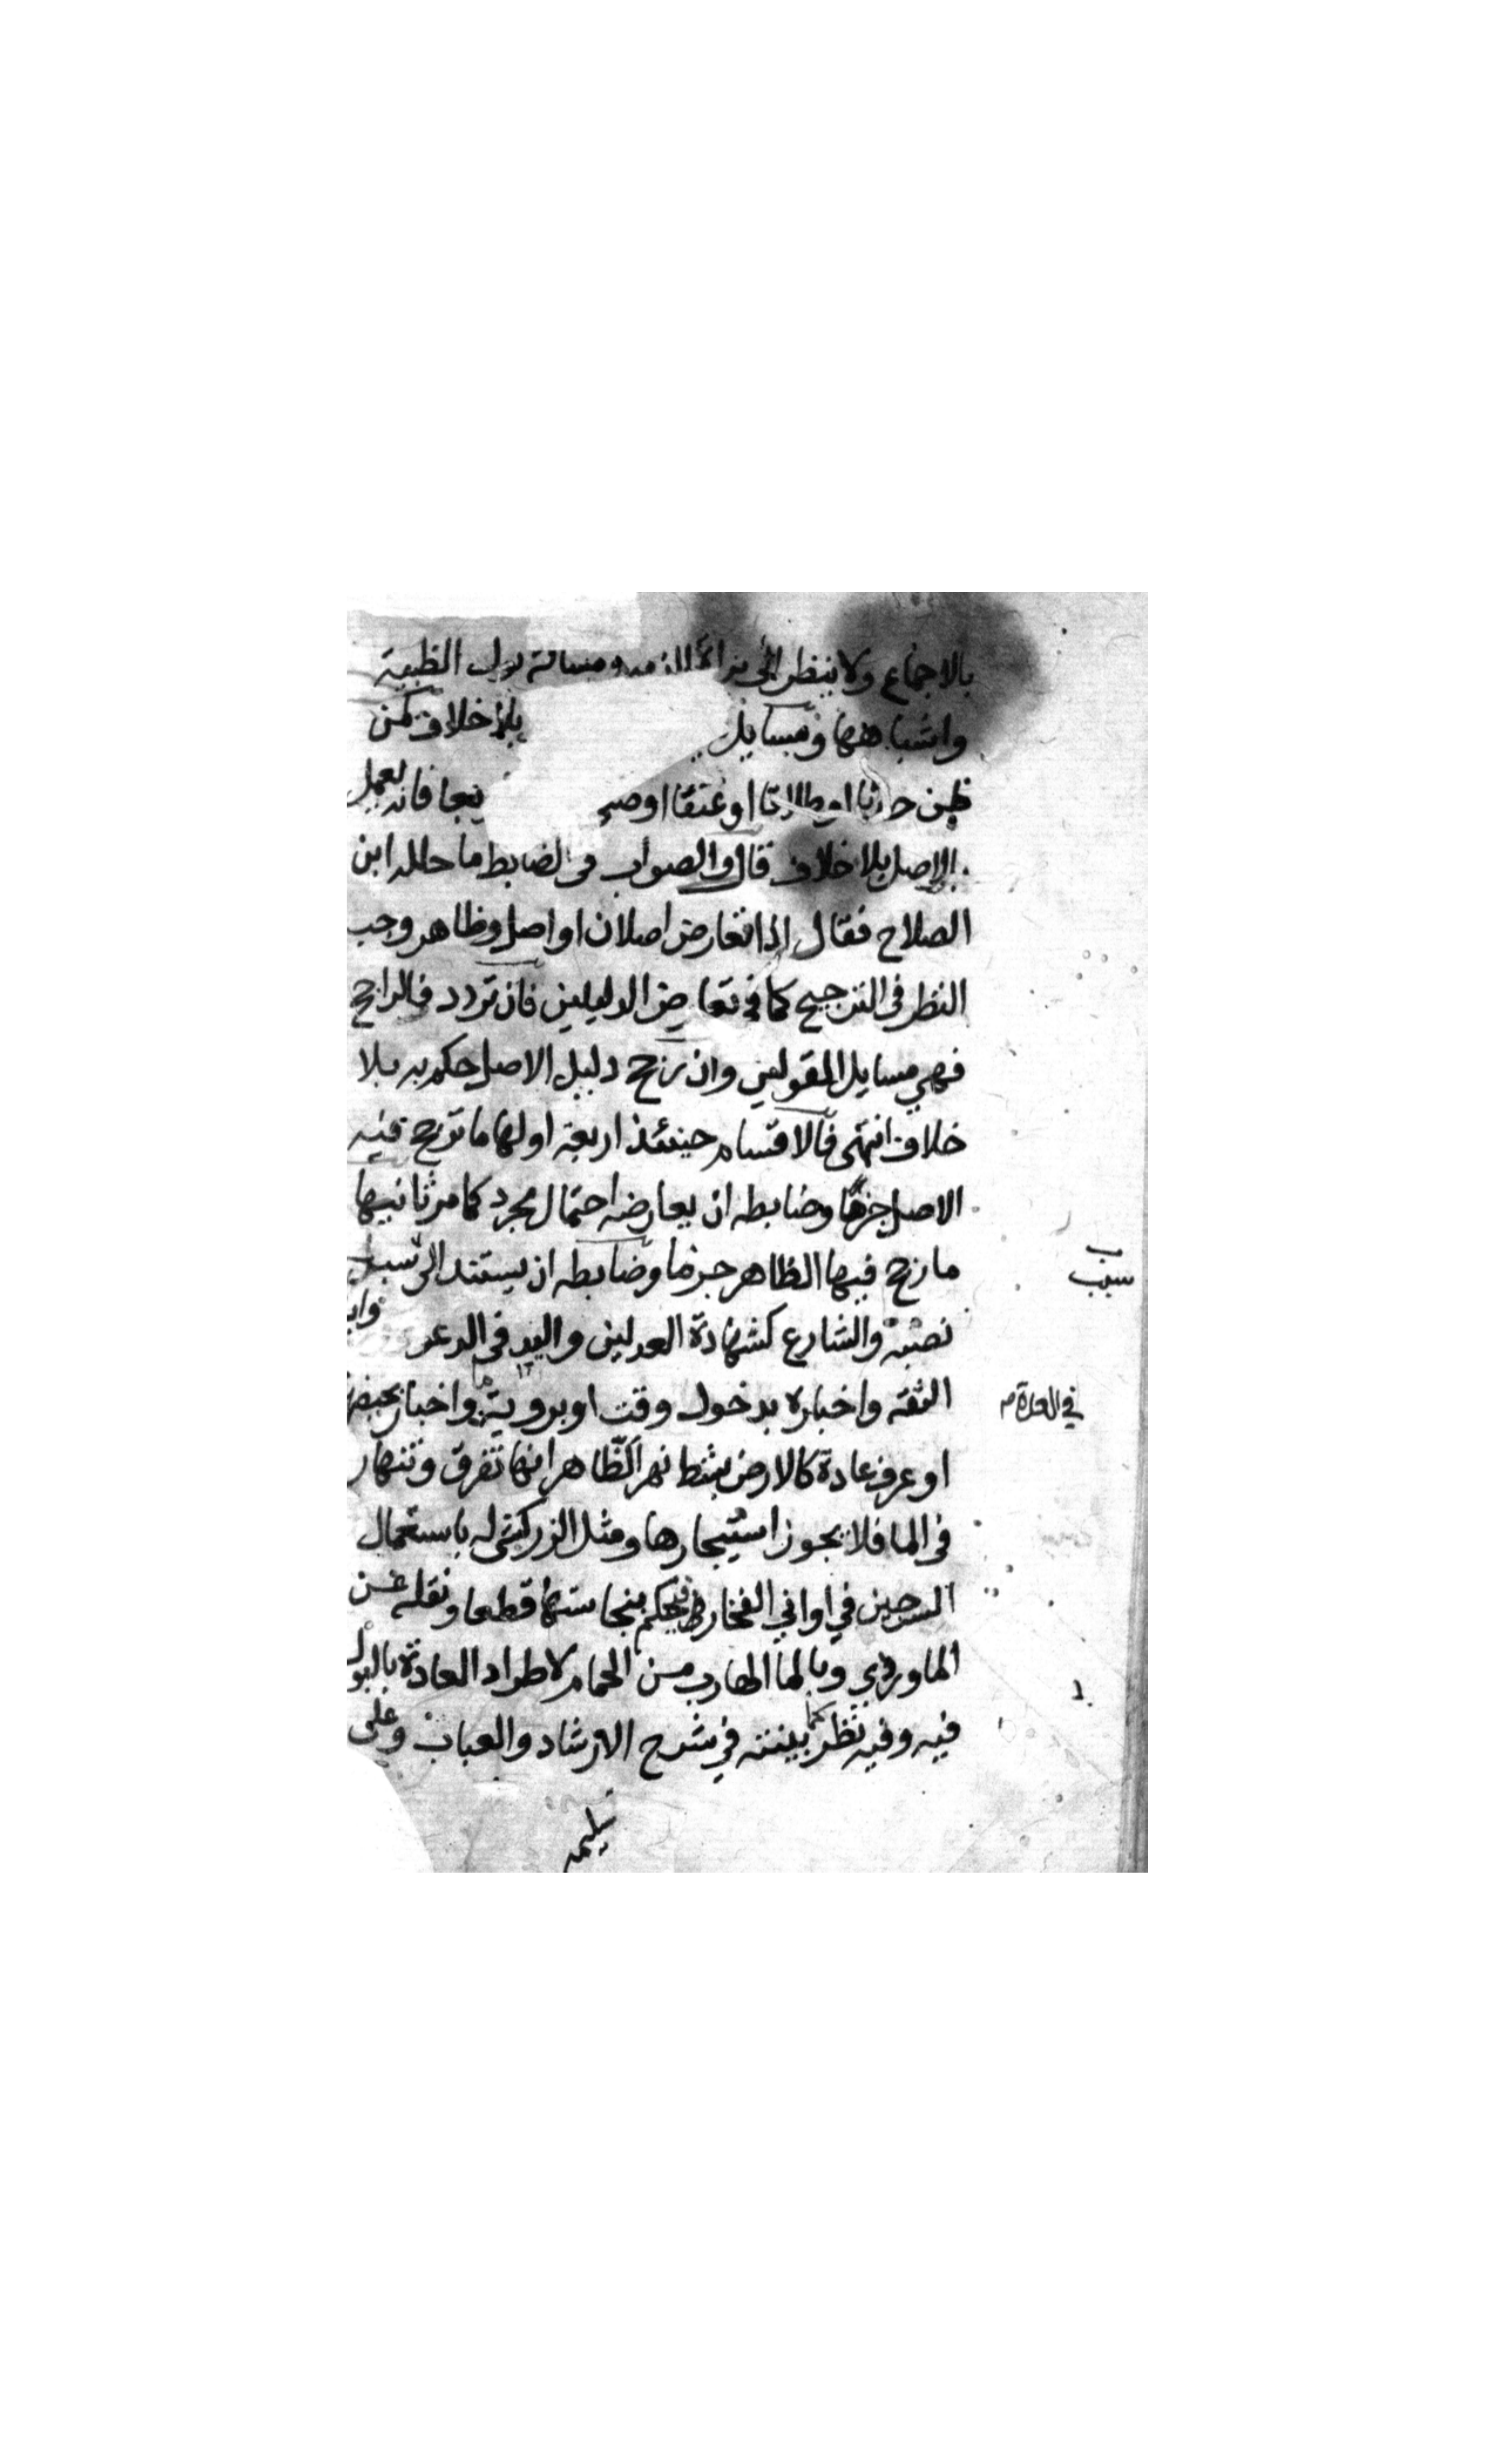 بالاجماع ولا ينظر الى براءة الذمة ومسالة بول الظبية
واشباهها ومسايل بلا خلاف كمن
ظن حدثا او طلاقا او عتقا او فانه يعمل
بالاصل بلا خلاف قال والصواب في الضابط ما حاله ابن
الصلاح فقال اذا تعارض اصلان او اصل وظاهر وجب
النظر في الترجيح كما في تعارض الدليلين فان تردد في الراجح
فهي مسايل القولين وان ترجح دليل الاصل حكم به بلا
خلاف انتهى فالاقسام حينئذ اربعة اولها ما ترجح فيه
الاصل جزما وضابطه ان يعارضه احتمال مجرد كما مر ثانيها
ما رجح فيها الظاهر جزما وضابطه ان يستند الى سبب
سبب
نصبه الشارع كشهادة العدلين واليد في الدعو
الثقة واخباره بدخول وقت او بروية واخبار بحيضها
في العدة
او عرف عادة كالارض بشط نهر الظاهر انها تغرق وتنهار
في الما فلا يجوز استيجارها ومثل الزركشي له باستعمال
السرجين في اواني الفخار فيحكم بنجاستها قطعا ونقله عن
الماوردي وبالما الهارب من الحمام لاطراد العادة بالبول
فيه وفيه نظر كما بينته في شرح الارشاد والعباب وعلى